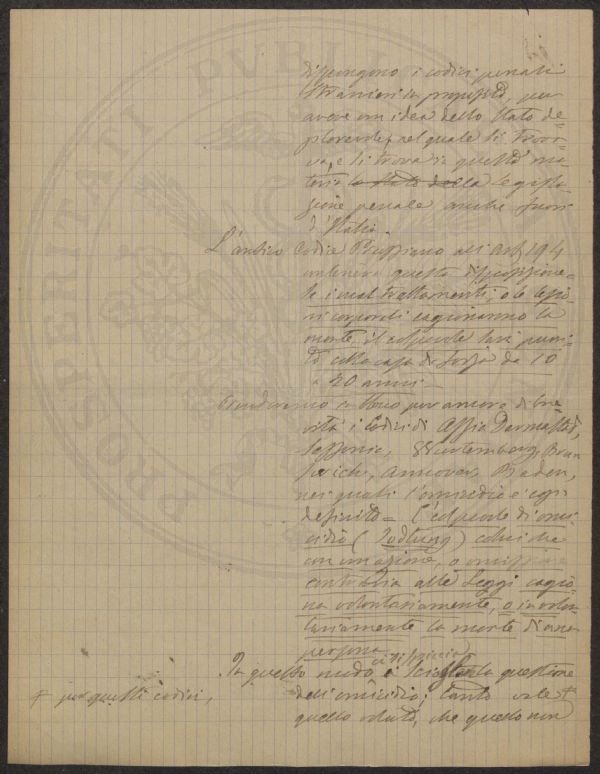 dispongono i codici penali
stranieri in proposito, per
avere un'idea dello stato de-
plorevole, nel quale si trova-
va, e si trova in questa ma-
teria lo stato della legisla-
zione penale anche fuori
d'Italia.
L'antico Codice Prussiano all'art. 194
conteneva questa disposizione =
Se i maltrattamenti, o le lesio-
ni corporali cagionarono la
morte, il colpevole sarà puni-
to colla casa di forza da 10
a 20 anni.
i Codici di Assia Darmstadt,
Sassonia, Wurtemberg, Brun-
swich, Annover, Baden,
nei quali l'omicidio è così
definito = È colpevole di omi-
cidio (Todtung) colui che
con un'azione, o omissione
contraria alle Leggi cagio-
na volontariamente, o involon-
tariamente la morte d'una
persona
In questo modo è sciolta la questione
dell'omicidio; tanto vale +
quello voluto, che quello non
+ per questi codici,
PROSPERITATI PUBLI